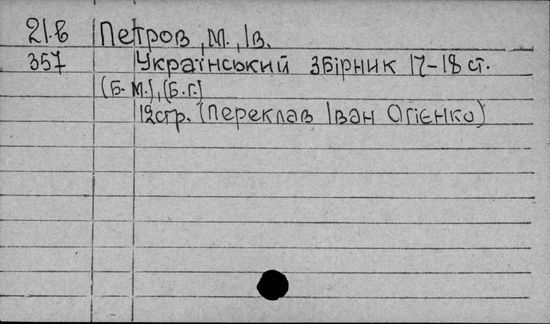 21.б Петров, М., Ів.
357 Український збірник 17-18 ст.
(Б. М.), (Б. Г.)
12 стр. (переклав Іван Огієнко)